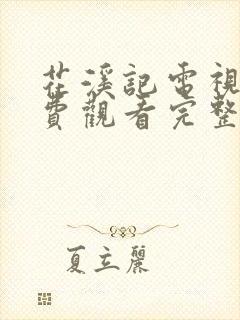 花溪記電視
費觀看完整
夏立麗